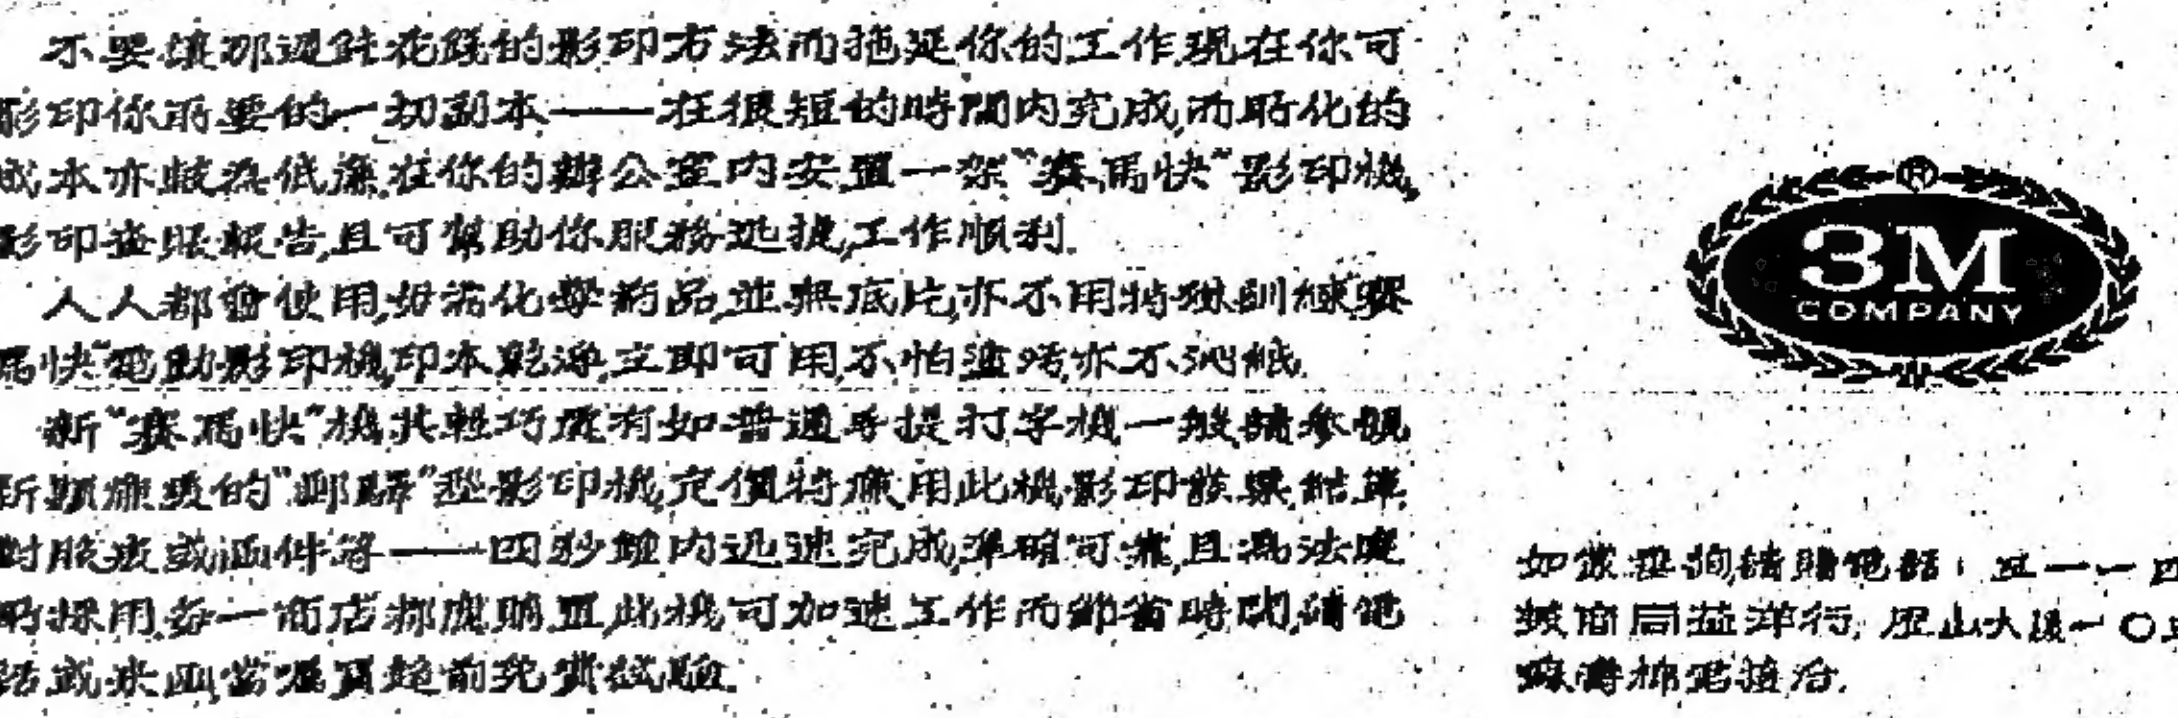 不要讓那過時花錢的影印方法而拖延你的工作,現在你可
影印你所要的一切副本——在很短的時間內完成,而所化的
成本亦較為低廉,在你的辦公室內安置一架"賽馬快"影印機,
影印盡賬報告,且可幫助你服務迅捷,工作順利.
人人都會使用,毋需化學葯品,並無底片,亦不用特殊訓練,"賽
馬快"電動影印機,印本乾淨,立即可用,不怕塗污,亦不沾紙.
新"賽馬快"機,其輕巧處有如普通手提打字機一般,請參觀
新穎廉價的"郵驛"型影印機,定價特廉,用此機影印發票,結單,
對賬表或函件等——四秒鐘內迅速完成,準確可靠,且為法庭
所採用,每一商店都應購置,此機可加速工作而節省時間,請電
話或來函,當派員趨前免費試驗.
3M
COMPANY
®
如蒙垂詢,請賜電話:五一一四
該商同益洋行,歷山大樓一〇五